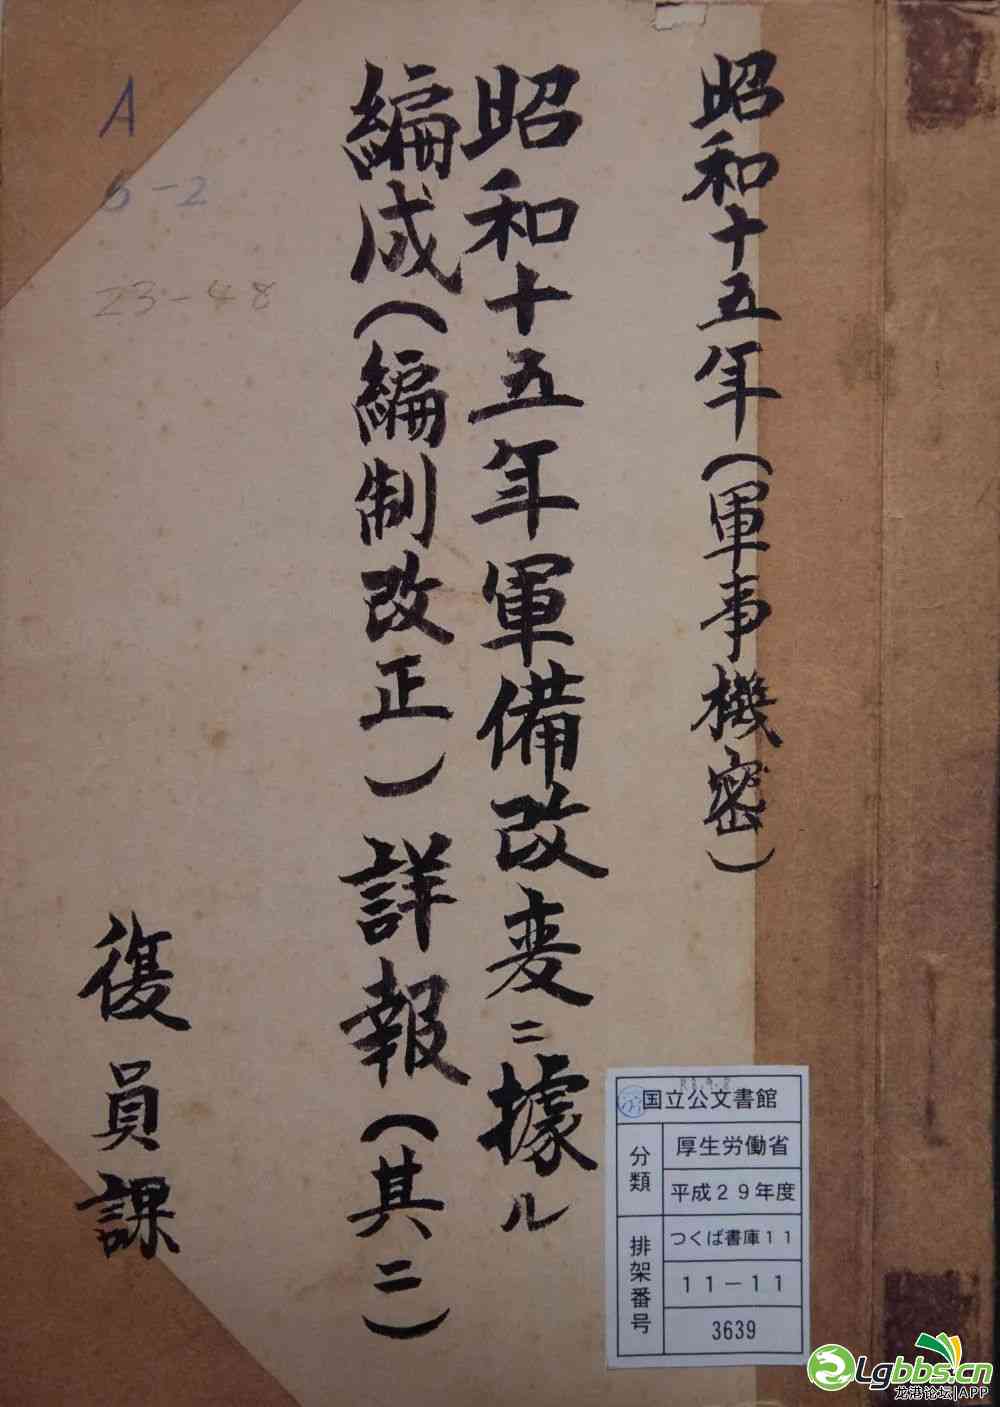 昭和十五年（軍事機密）
昭和十五年軍備改変ニ據ル
編成（編制改正）詳報（其二）
復員課
A
6-2
23-48
国立公文書館
分類
厚生労働省
平成29年度
排架番号
つくば書庫11
11-11
3639
Lgbbs.cn
龙港论坛|APP